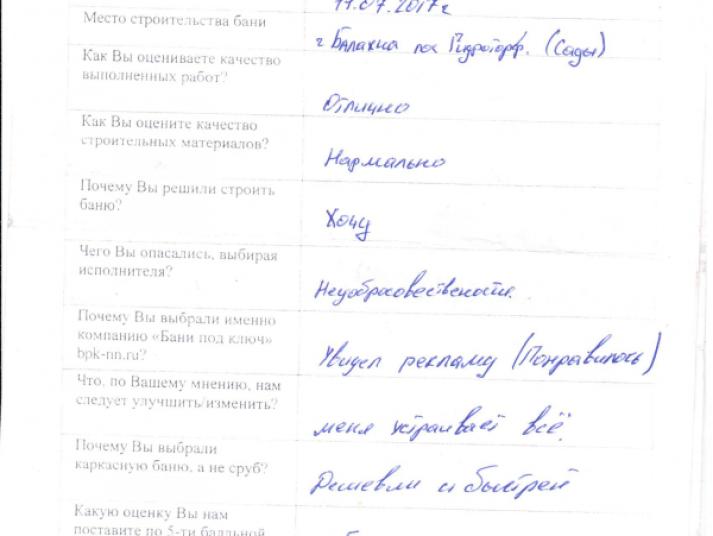 11.07.2017г
Место строительства бани
г Балахна пос Гидроторф. (Сады)
Как Вы оцениваете качество
выполненных работ?
Отлично
Как Вы оцените качество
строительных материалов?
Нармально
Почему Вы решили строить
баню?
Хочу
Чего Вы опасались, выбирая
исполнителя?
Недобросовествености.
Почему Вы выбрали именно
компанию «Бани под ключ»
bpk-nn.ru?
Увидел рекламу (Понравилось)
Что, по Вашему мнению, нам
следует улучшить/изменить?
меня устраивает всё.
Почему Вы выбрали
каркасную баню, а не сруб?
Дешевли и быстрей
Какую оценку Вы нам
поставите по 5-ти балльной